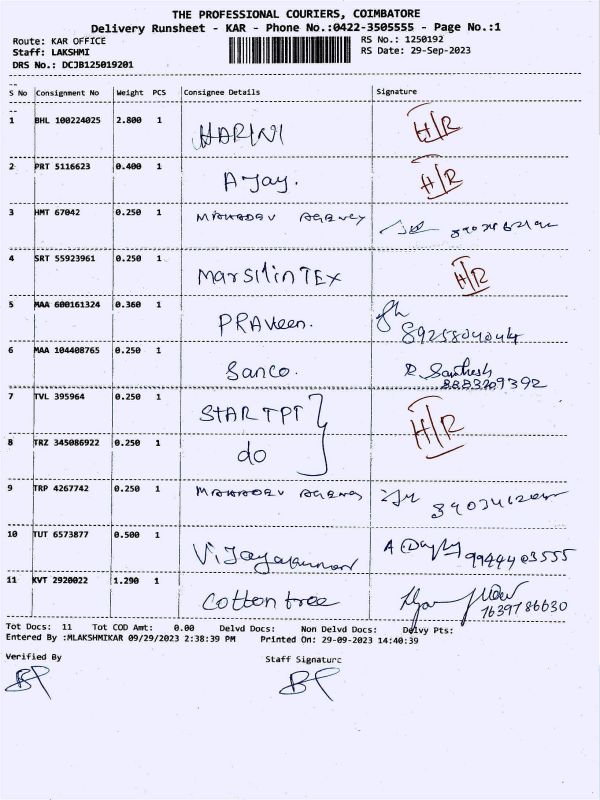 THE PROFESSIONAL COURIERS, COIMBATORE
Delivery Runsheet - KAR - Phone No.:0422-3505555 - Page No.:1
Route: KAR OFFICE RS No.: 1250192
Staff: LAKSHMI RS Date: 29-Sep-2023
DRS No.: DCJB125019201
S No Consignment No Weight PCS Consignee Details Signature
1 BHL 100224025 2.800 1 HARINI H/R
2 PRT 5116623 0.400 1 AJay. H/R
3 HMT 67042 0.250 1 MAHADEV AGENCY
4 SRT 55923961 0.250 1 MarsilinTEX H/R
5 MAA 600161324 0.360 1 PRAveen. 8925804044
6 MAA 104408765 0.250 1 Sanco. R. Santhesh
8883209392
7 TVL 395964 0.250 1 STAR TPT H/R
8 TRZ 345086922 0.250 1 do
9 TRP 4267742 0.250 1 MAHADEV AGENCY
10 TUT 6573877 0.500 1 Vijayakumar 9944403555
11 KVT 2920022 1.290 1 Cotton tree 7639786630
Tot Docs: 11 Tot COD Amt: 0.00 Delvd Docs: Non Delvd Docs: Delvy Pts:
Entered By :MLAKSHMIKAR 09/29/2023 2:38:39 PM Printed On: 29-09-2023 14:40:39
Verified By Staff Signature